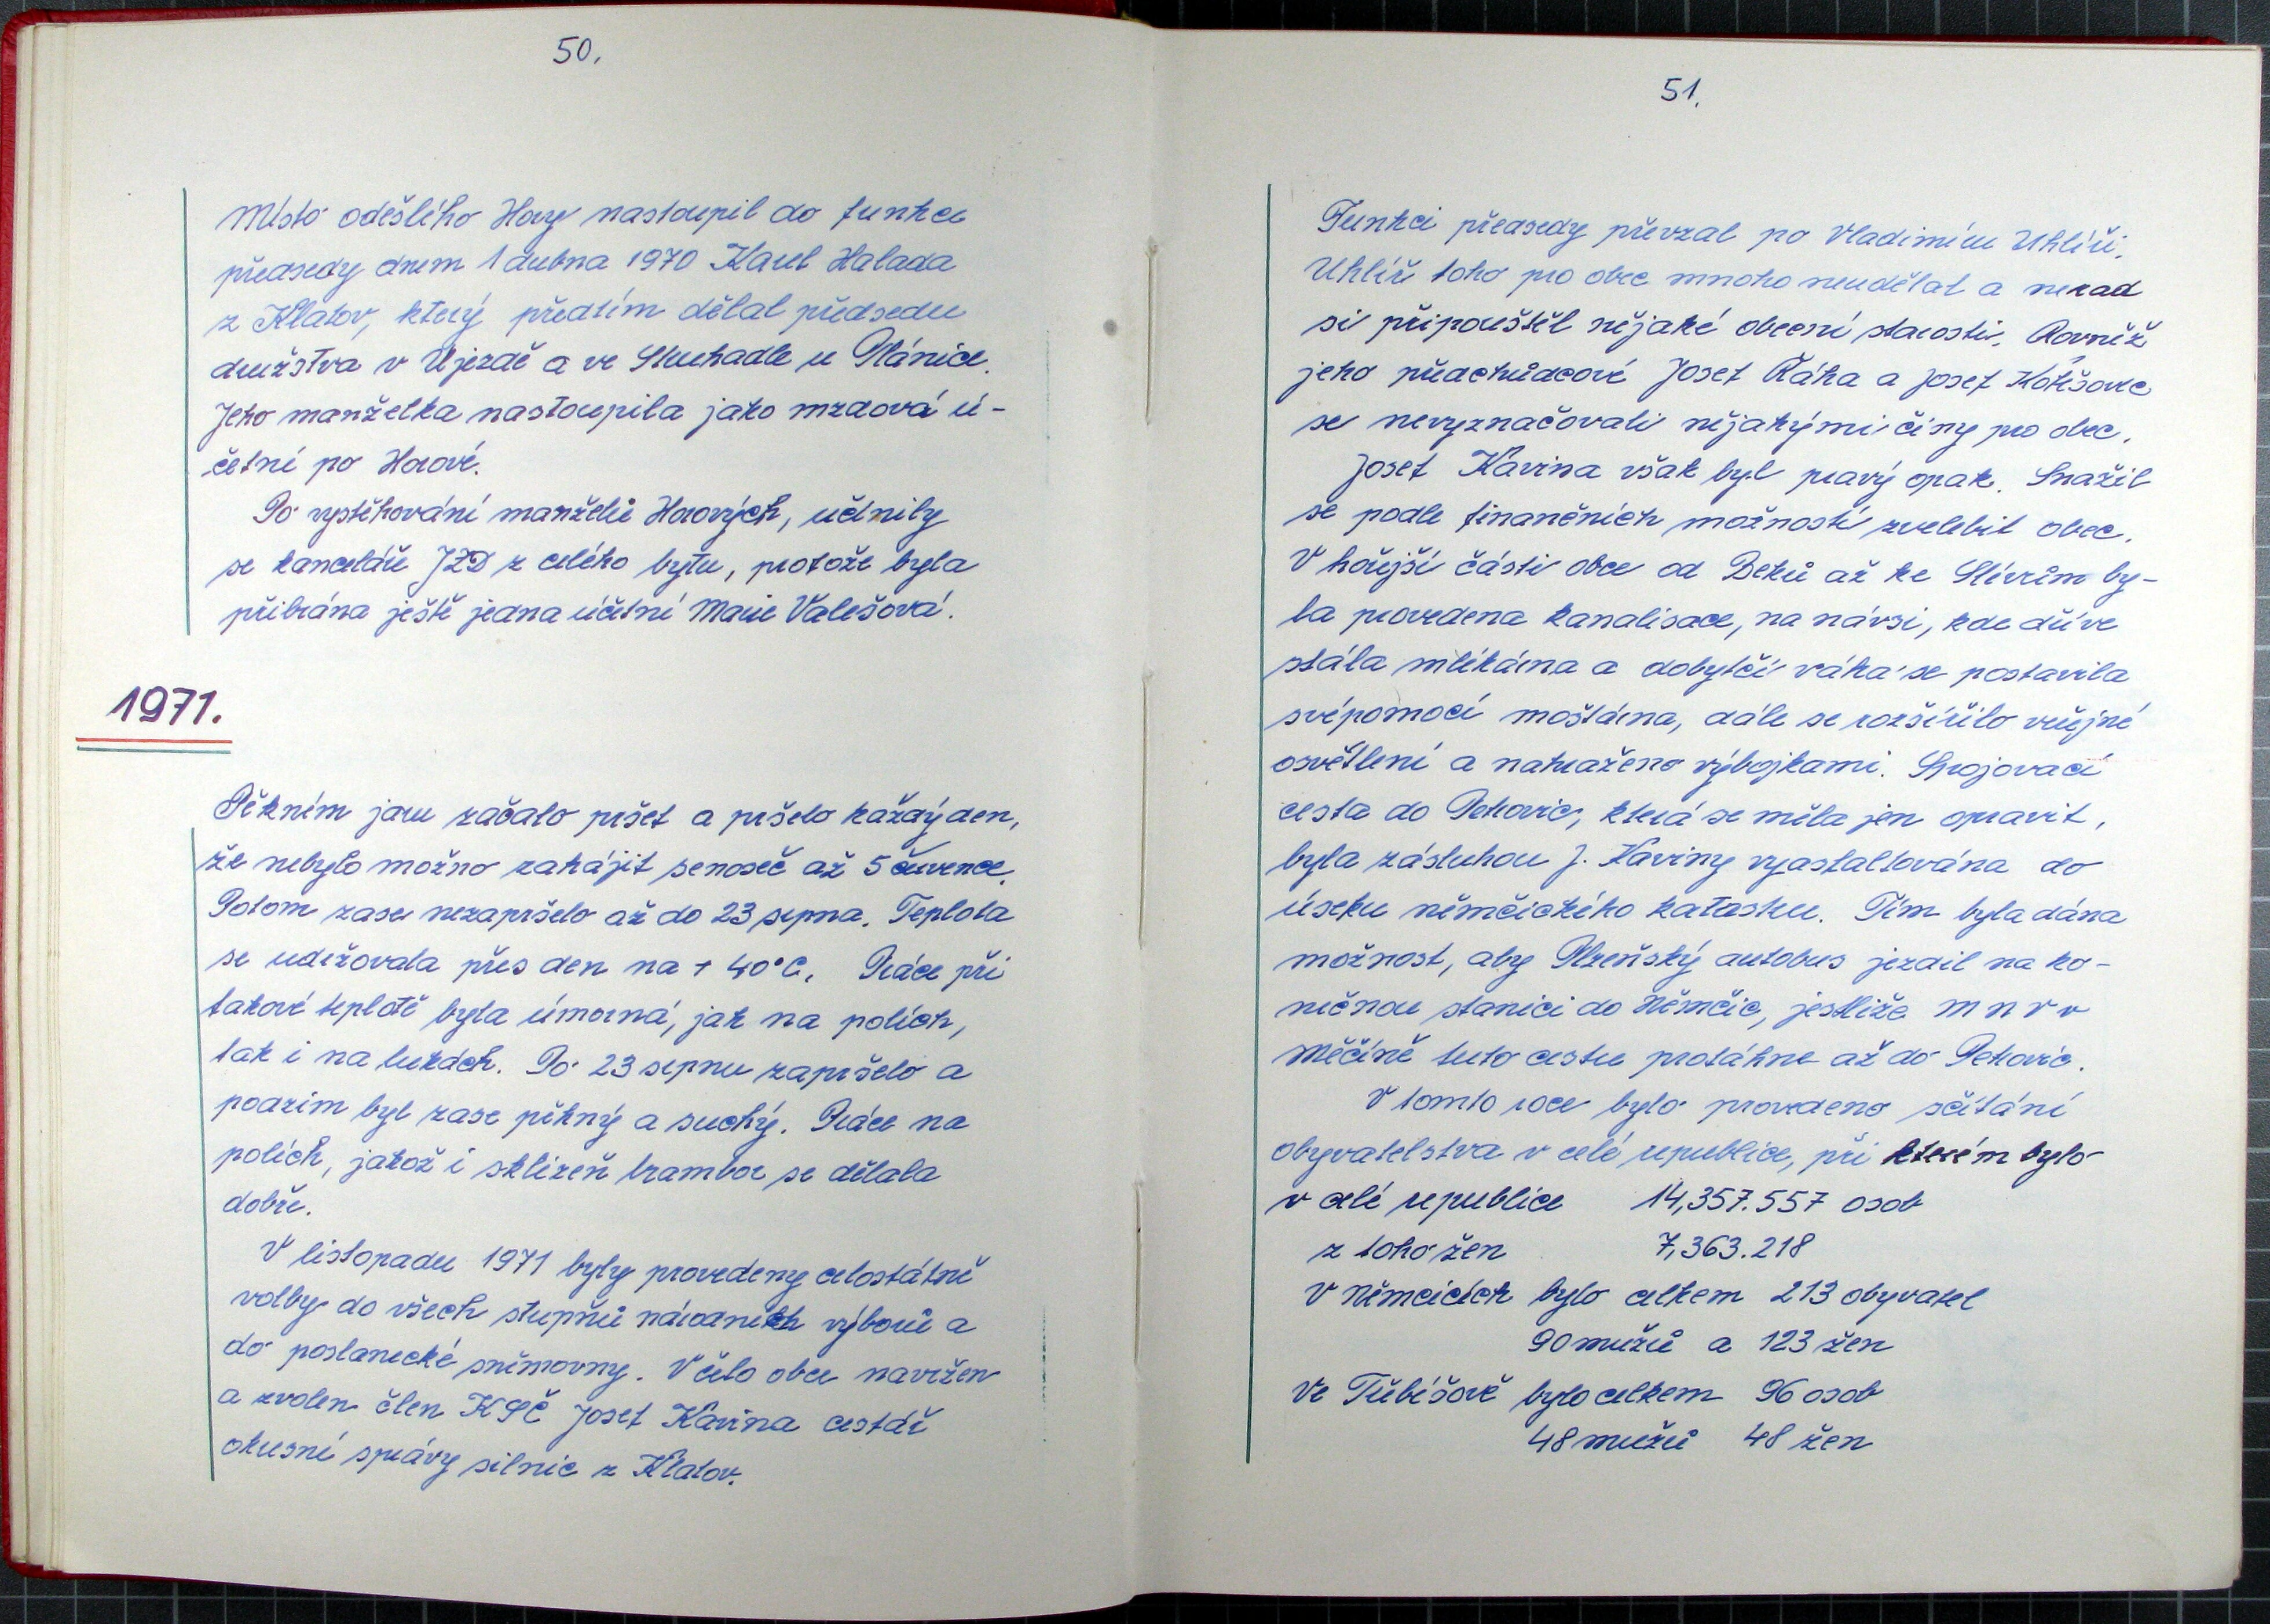 50.
Místo odešlého Hory nastoupil do funkce
předsedy dnem 1 dubna 1970 Karel Halada
z Klatov, který předtím dělal předsedu
družstva v Újezdě a ve Struhadle u Plánice.
Jeho manželka nastoupila jako mzdová ú-
četní po Horové.
Po vystěhování manželů Horových, učinily
se kanceláře JZD z celého bytu, protože byla
přibrána ještě jedna účetní Marie Valešová.
1971.
Pěkním jaru začalo pršet a pršelo každý den,
že nebylo možno zahájit senoseč až 5 července.
Potom zase nezapršelo až do 23 srpna. Teplota
se udržovala přes den na + 40°C. Práce při
takové teplotě byla úmorná, jak na polích,
tak i na lukách. Po 23 srpnu zapršelo a
podzim byl zase pěkný a suchý. Práce na
polích, jakož i sklizeň brambor se dělala
dobře.
V listopadu 1971 byly provedeny celostátně
volby do všech stupňů národních výborů a
do poslanecké sněmovny. V čelo obce navržen
a zvolen člen KSČ Josef Kavina cestář
okresní správy silnic z Klatov.
51.
Funkci předsedy převzal po Vladimíru Uhlíři.
Uhlíř toho pro obec mnoho neudělal a nerad
si připouštěl nějaké obecní starosti. Rovněž
jeho předchůdcové Josef Ráha a Josef Kotěšovec
se nevyznačovali nějakými činy pro obec.
Josef Kavina však byl pravý opak. Snažil
se podle finančních možností zvelebit obec.
V hořejší části obce od Beků až ke Slívům by-
la provedena kanalisace, na návsi, kde dříve
stála mlékárna a dobytčí váha se postavila
svépomocí moštárna, dále se rozšířilo veřejné
osvětlení a nahraženo výbojkami. Spojovací
cesta do Petrovic, která se měla jen opravit,
byla zásluhou J. Kaviny vyasfaltována do
úseku němčického katastru. Tím byla dána
možnost, aby Plzeňský autobus jezdil na ko-
nečnou stanici do Němčic, jestliže M N V v
Měčíně tuto cestu protáhne až do Petrovic.
V tomto roce bylo provedeno sčítání
obyvatelstva v celé republice, při kterém bylo
v celé republice 14,357.557 osob
z toho žen 7,363.218
V Němcicích bylo celkem 213 obyvatel
90 mužů a 123 žen
Ve Třebíšově bylo celkem 96 osob
48 mužů 48 žen